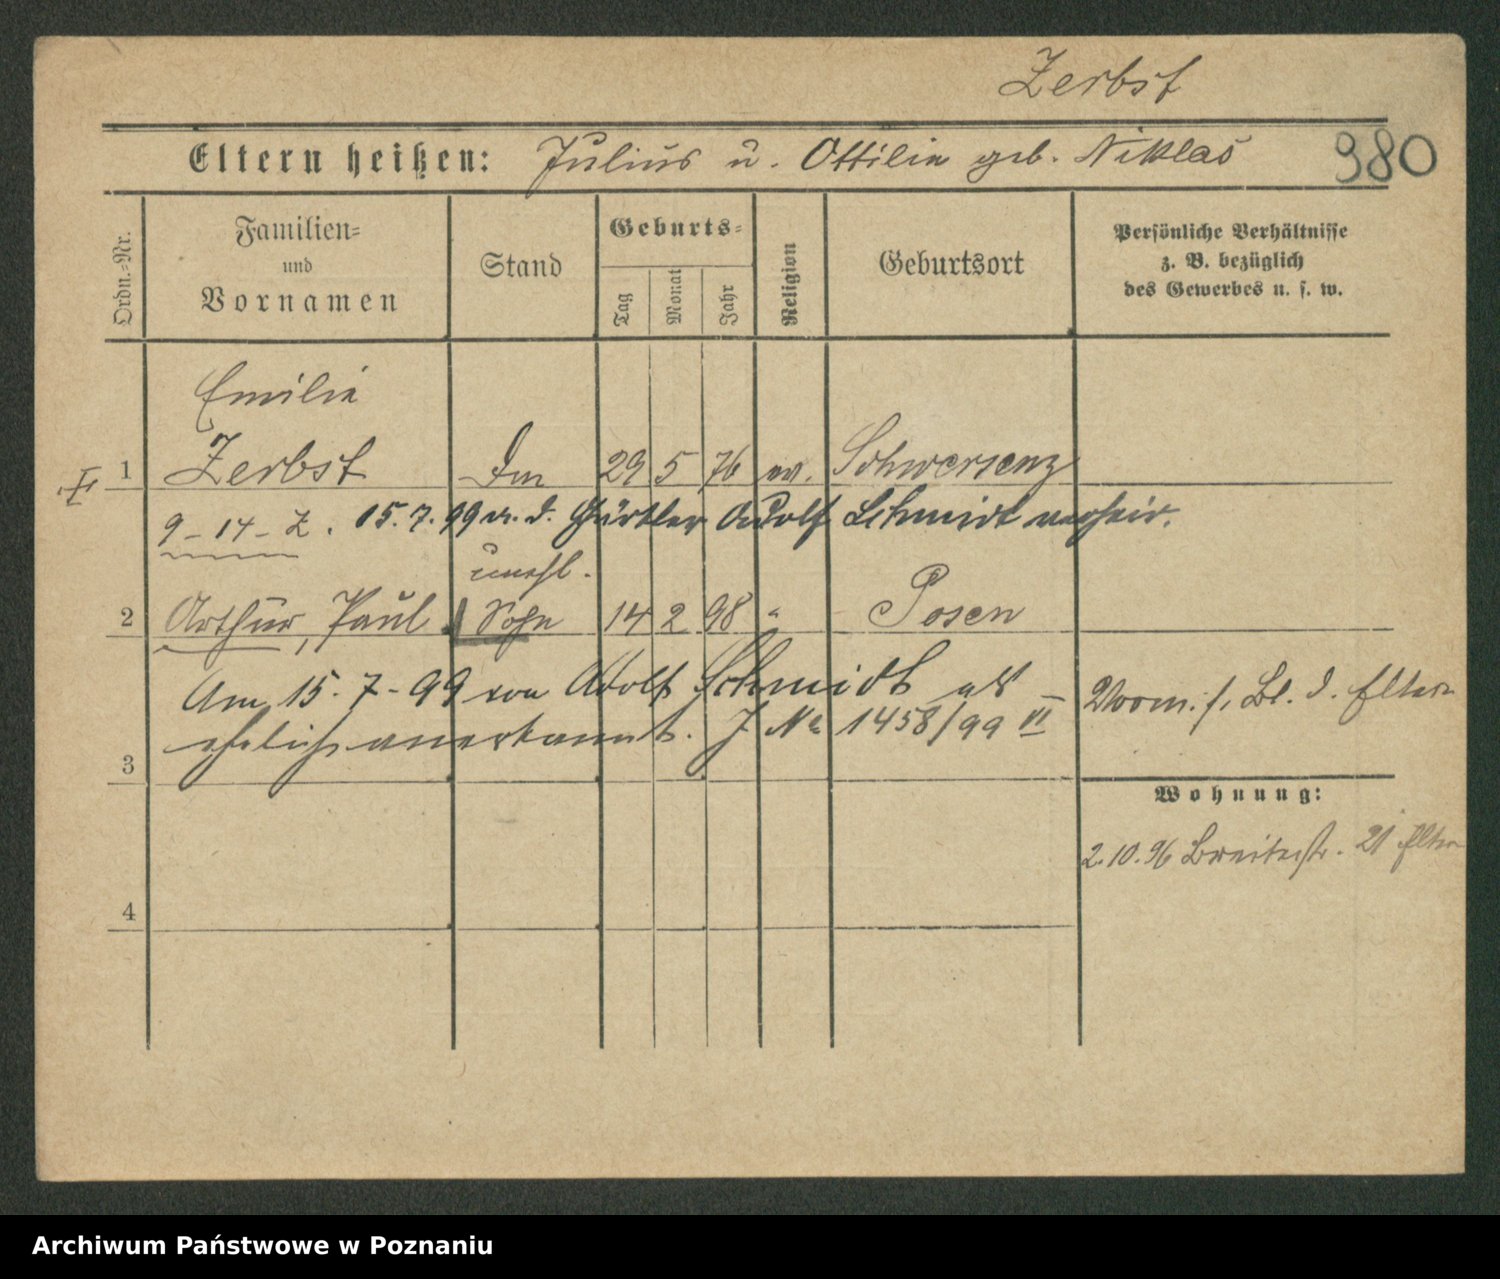 Zerbst
Eltern heißen: Julius u. Ottilie geb. Niklas 980
Ordn.-Nr.
Familien-
und
Vornamen
Stand
Geburts-
Tag
Monat
Jahr
Religion
Geburtsort
Persönliche Verhältnisse
z. B. bezüglich
des Gewerbes u. s. w.
Emilie
1 Zerbst 29 5 76 ev. Schwersenz
9-14-Z. 15.7.99 m. d. Gürtler Adolf Schmidt verheir.
unehl.
2 Arthur, Paul Sohn 14 2 98 " Posen
Am 15.7-99 von Adolf Schmidt als
ehelich anerkannt. J No 1458/99 VI
Vorm. s. Bl. d. Eltern
3
Wohnung:
2.10.96 Breitestr. 21 Eltern
4
Archiwum Państwowe w Poznaniu